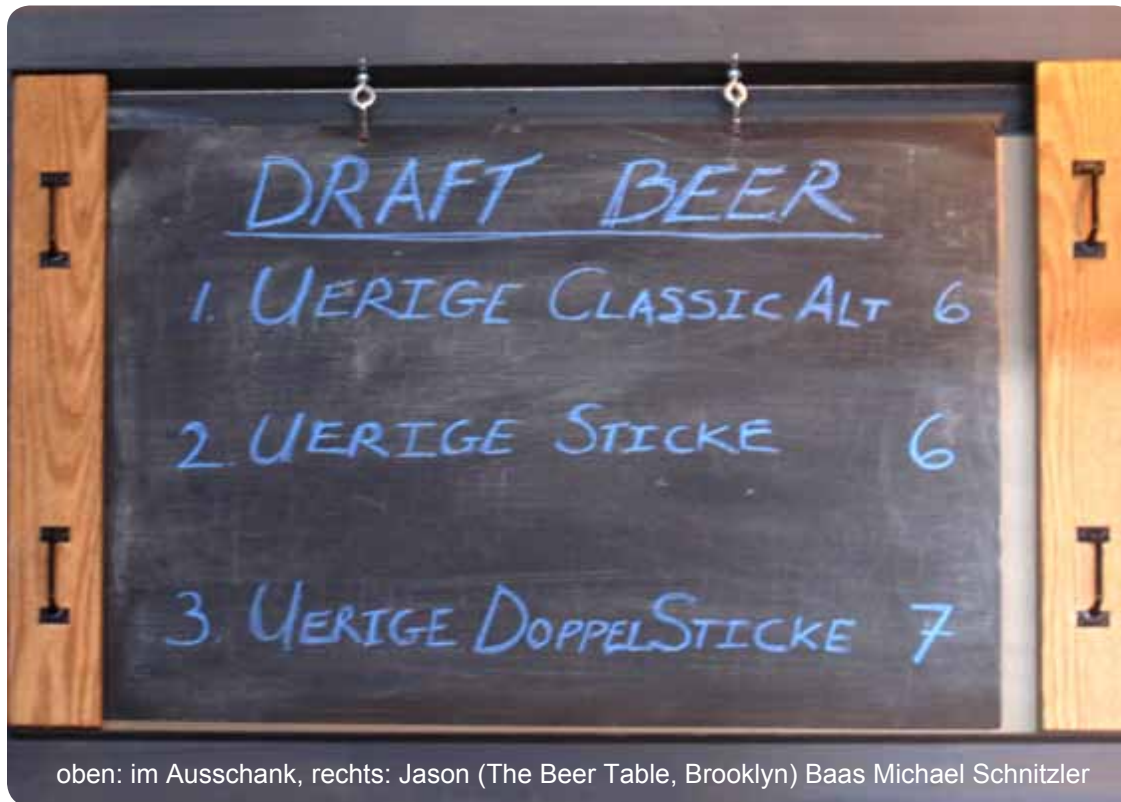 DRAFT BEER
1. UERIGE CLASSIC ALT 6
2. UERIGE STICKE 6
3. UERIGE DOPPELSTICKE 7
oben: im Ausschank, rechts: Jason (The Beer Table, Brooklyn) Baas Michael Schnitzler